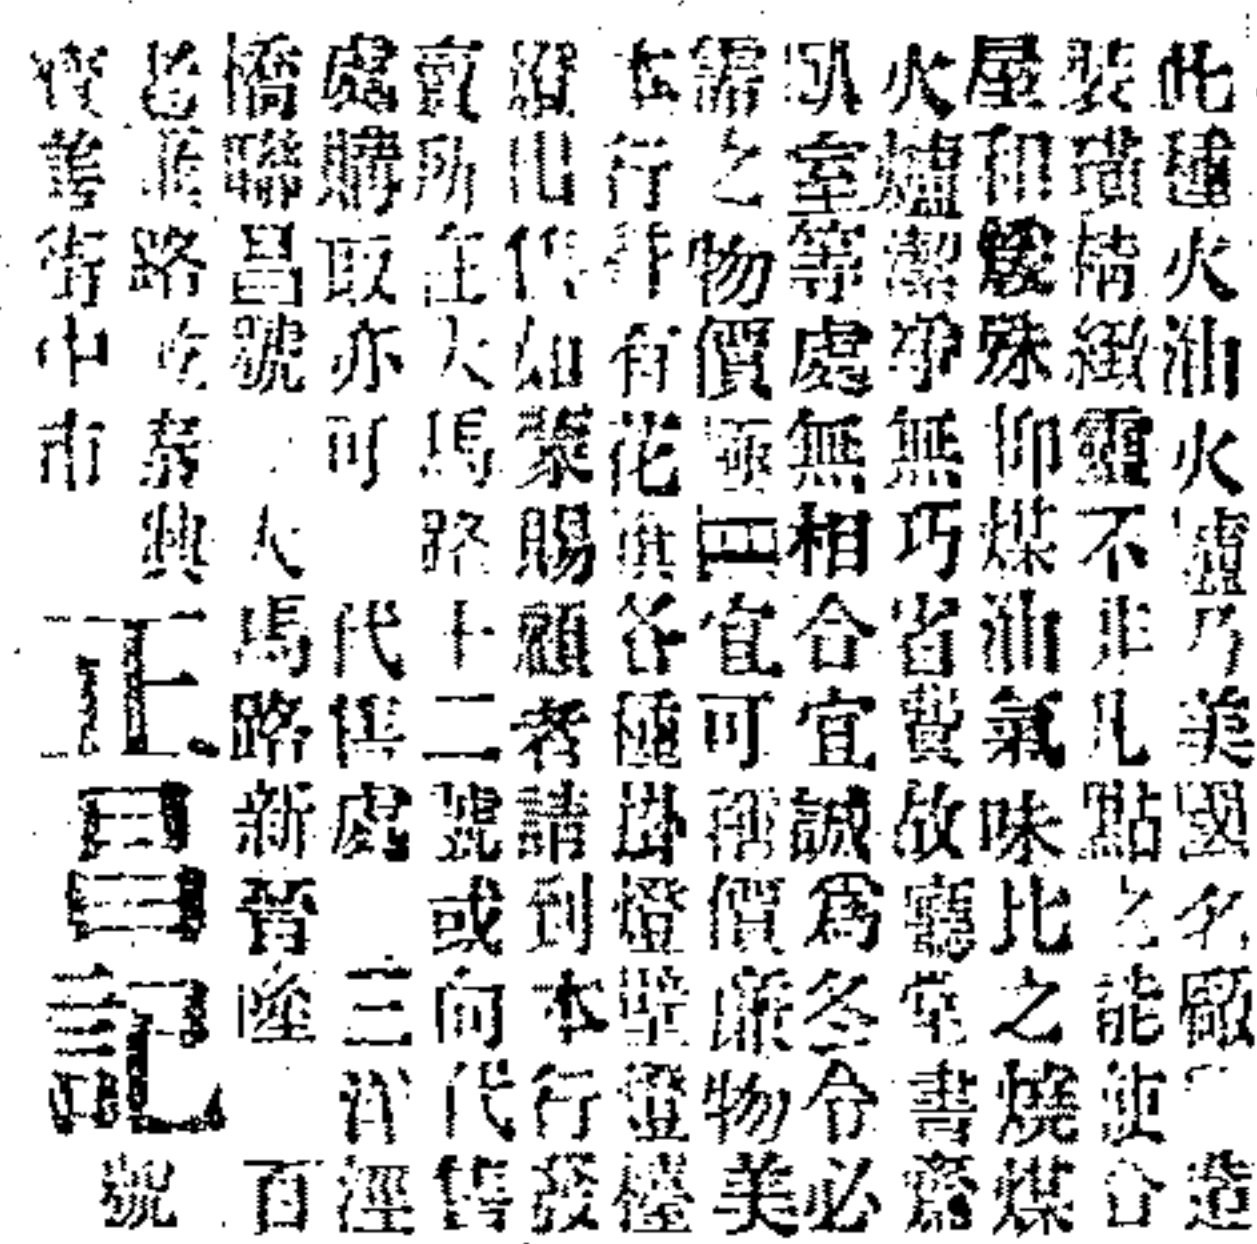 此種火油火爐乃美國名廠造
裝璜精緻靈不非凡點之能使合
屋和煖殊仰煤油氣味比之燒煤
火爐潔净無巧省費故廳堂書齋
臥室等處無相合宜誠爲冬令必
需之物價極宜可稱價廉物美
本行幷有花旗各種掛燈壁燈檯
燈出代如蒙賜顧者請到本行發
賣所在大馬路十二號或向代售
處購取亦可 代售處 三洋涇
橋聯昌號 大馬路新晉隆 百
老路泰興
寶善街中市 正昌記號